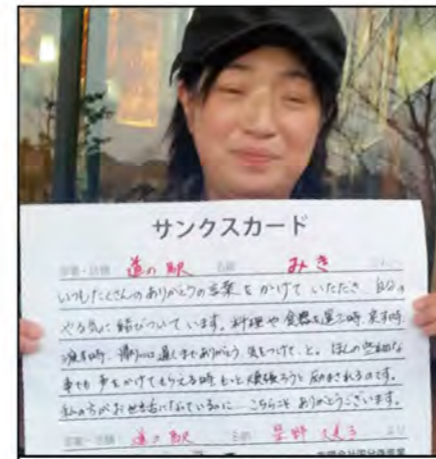 サンクスカード
事業・店舗 道の駅 名前 みき さんへ
いつもたくさんのありがとうの言葉をかけていただき、自分の
やる気に結びついています。料理や食器を運ぶ時、戻す時、
渡す時、帰りには遅くまでありがとう 気をつけて、と。ほんの些細な
事でも声をかけてもらえる時もっと頑張ろうと励まされるのです。
私の方がお世話になっているのに、こちらこそありがとうございます。
事業・店舗 道の駅 名前 星野 より